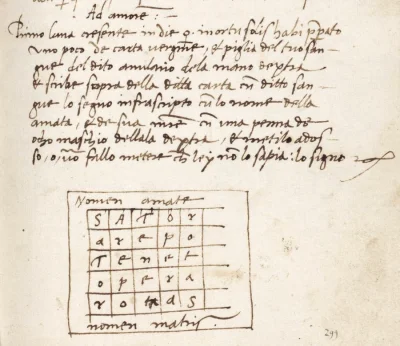 Ad amore:
Primo luna cresente in die ♀ in ortu solis habi preparato
uno poco de carta vergine, et piglia del tuo san-
gue del dito anulario dela mano dextra
et scribe sopra della ditta carta cum ditto san-
gue lo segno infrascripto cum lo nome della
amata, et de sua matre cum una penna de
ocho maschio dell ala dextra, et metilo ados-
so, o, fallo metere che ley non lo sapia: lo signo
Nomen amate
S A T O r
a r e p o
T e n e t
o p e r a
r o t a S
nomen matris.
244